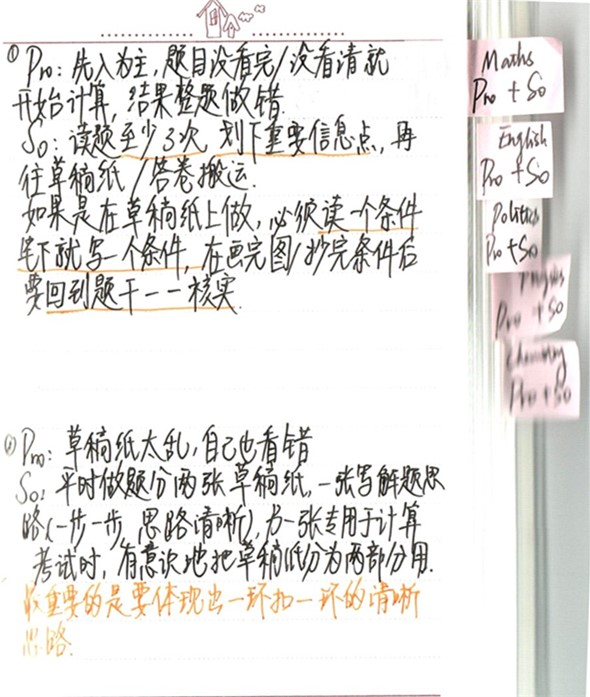 ① Pro: 先入为主,题目没看完/没看清就
开始计算,结果整题做错.
So: 读题至少3次,划下重要信息点,再
往草稿纸/答卷搬运.
如果是在草稿纸上做,必须读一个条件
笔下就写一个条件,在画完图/抄完条件后
要回到题干一一核实.
② Pro: 草稿纸太乱,自己也看错
So: 平时做题分两张草稿纸,一张写解题思
路(一步一步,思路清晰),另一张专用于计算
考试时,有意识地把草稿纸分为两部分用.
最重要的是要体现出一环扣一环的清晰
思路.
Maths
Pro + So
English
Pro + So
Politics
Pro + So
Physics
Pro + So
Chemistry
Pro + So